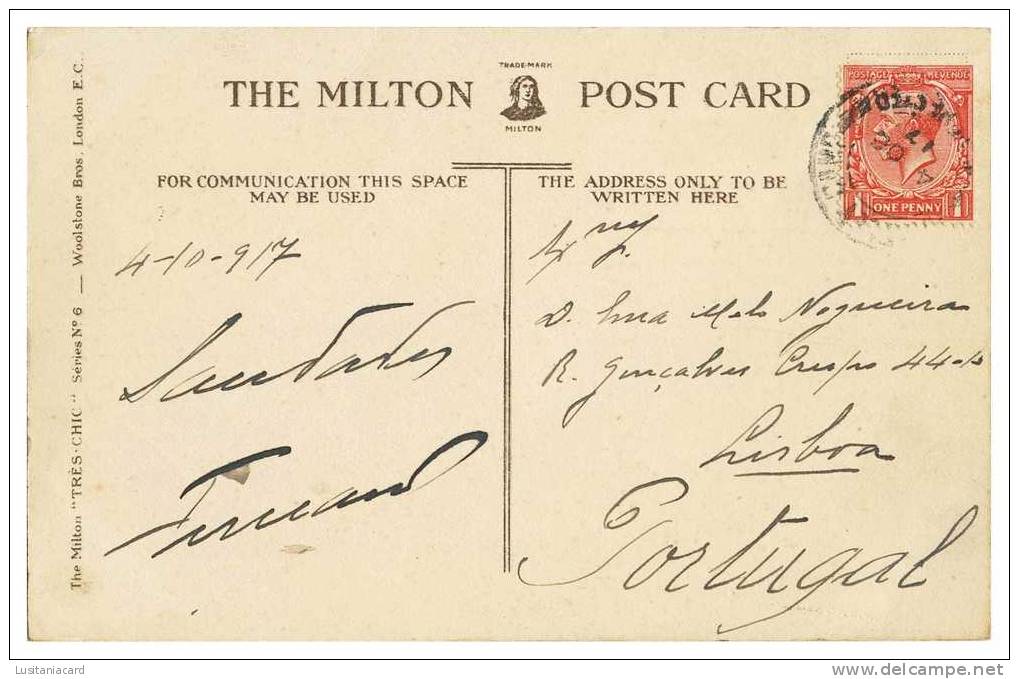 THE MILTON POST CARD
TRADE-MARK
MILTON
FOR COMMUNICATION THIS SPACE
MAY BE USED
THE ADDRESS ONLY TO BE
WRITTEN HERE
The Milton "TRÈS-CHIC" Séries Nº 6 — Woolstone Bros, London E.C.
POSTAGE REVENUE
1 ONE PENNY 1
4-10-917
Saudades
D. Melo Nogueira
R. Gonçalves Crespo 44-
Lisboa
Portugal
Lusitaniacard
www.delcampe.net